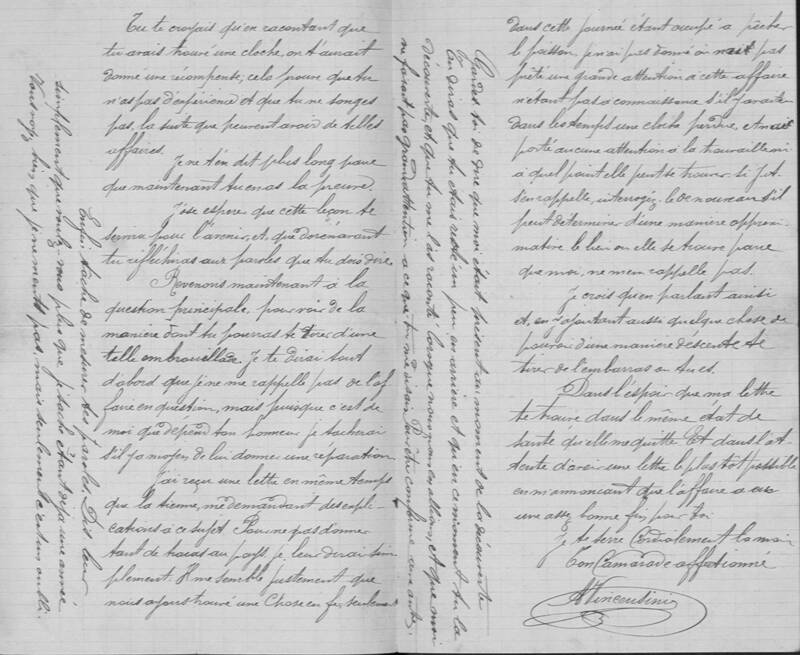 Tu te croyais qu'en racontant que
tu avais trouvé une cloche, on t'aurait
donné une récompense; cela prouve que tu
n'as pas d'expérience et que tu ne songes
pas, la suite que peuvent avoir de telles
affaires.
Je ne t'en dit plus long parce
que maintenant tu en as la preuve.
J'ose esperer que cette leçon te
servira pour l'avenir, et que dorénavant
tu réflechiras aux paroles que tu dois dire.
Revenons maintenant à la
question principale, pour voir de la
manière dont tu pourras te tirer d'une
telle embrouillade. Je te dirai tout
d'abord que je ne me rappelle pas de l'af
faire en question, mais puisque c'est de
moi que dépend ton honneur je tacherai
s'il y a moyen de lui donner une réparation.
J'ai reçu une lettre en même temps
que la tienne, me demandant des expli-
cations à ce sujet. Pour ne pas donner
tant de tracas au pays, je leur dirai sim
plement. Il me semble justement que
nous ayons trouvé une Chose en fer, seulement
dans cette journée étant occupé à pêcher
le poisson je n'ai pas donné ou pas
prêté une grande attention à cette affaire
n'étant pas à connaissance s'il y avait
dans les temps une cloche perdue, et
porté aucune attention à la travaille ni
à quel point elle peut se trouver. Si
s'en rappelle, interrogez-le de nouveau s'il
peut déterminer d'une manière approxi
mative le lieu ou elle se trouve parce
que moi, ne m'en rappelle pas.
Je crois qu'en parlant ainsi
et, en y ajoutant aussi quelque chose de
pouvoir d'une manière descente te
tirer de l'embarras ou tu es.
Dans l'espoir que ma lettre
te trouve dans le même état de
santé qu'elle me quitte Et dans l'at
tente d'avoir une lettre le plus tôt possible
en m'annonçant que l'affaire a eue
une assez bonne fin pour toi
Je te serre Cordialement la main
Ton Camarade affectionné
AVincensini
Enfin tâche de mesurer tes paroles Dis leur
simplement que voulez-vous plus que j'étache étant déjà une année
Vous voyez bien que je ne ments pas, mais seulement c'est un oubli.
Gardes toi de dire que moi était présent au moment de la découverte
Tu diras que tu étais resté un peu en arrière et qu'en ce moment tu la
découverte, et que tu me l'as raconté lorsque nous nous en allions, et que moi
ne faisant pas grande attention à ce que tu me disais